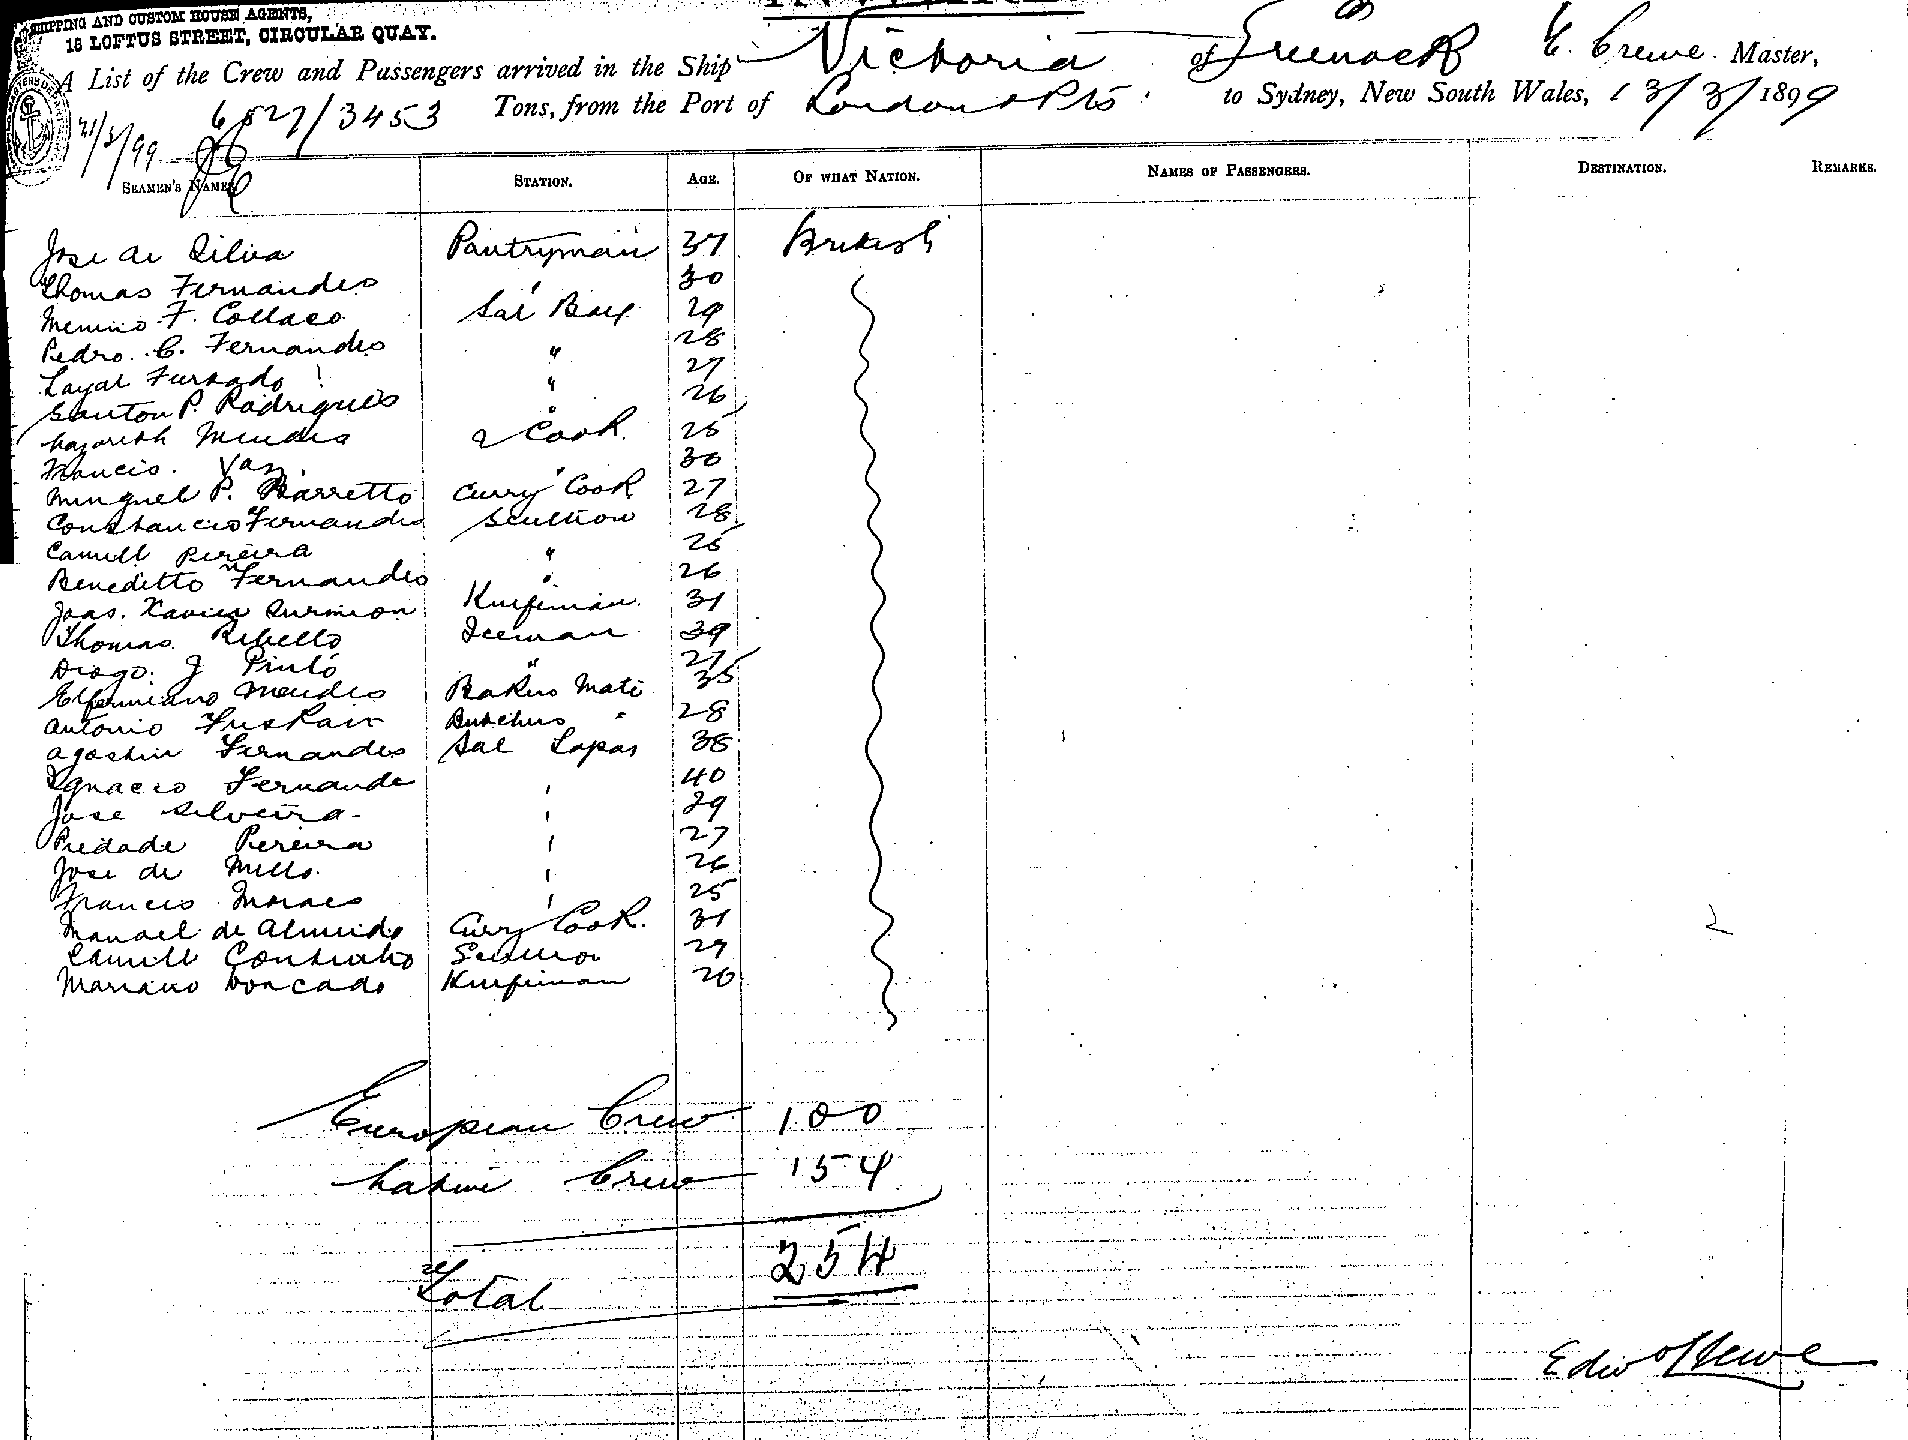 SHIPPING AND CUSTOM HOUSE AGENTS,
18 LOFTUS STREET, CIRCULAR QUAY.
A List of the Crew and Passengers arrived in the Ship Victoria of Greenock E. Crewe. Master,
6527/3453 Tons, from the Port of London & Pts to Sydney, New South Wales, 13/3/1899
SEAMEN'S NAMES STATION. AGE. OF WHAT NATION. NAMES OF PASSENGERS. DESTINATION. REMARKS.
Jose de Silva Pantryman 37 British
Thomas Fernandes " 30
Menino F. Collaco Sal Boy 29
Pedro C. Fernandes " 28
Furtado " 27
Santon P. Rodrigues " 26
Nazareth Mendes 2 Cook 25
Francis Vaz " 30
Minguel P. Barretto Curry Cook 27
Constancio Fernandes Scullion 28
Camill Pereira " 25
Benedetto Fernandes " 26
Joao. Xavier Knifeman 31
Thomas Rebello Iceman 39
Diogo J Pinto " 27
Mendes Bakers Mate 35
Antonio Butchers " 28
Agostin Fernandes Sal Topas 38
Ignacio Fernande " 40
Jose Silveira " 29
Piedade Pereira " 27
Jose de Mello " 26
Francis Moraes " 25
Manoel de Almeida Curry Cook. 31
Camill Scullion 29
Mariano Knifeman 26
European Crew 100
Native Crew 154
Total 254
Edw Crewe